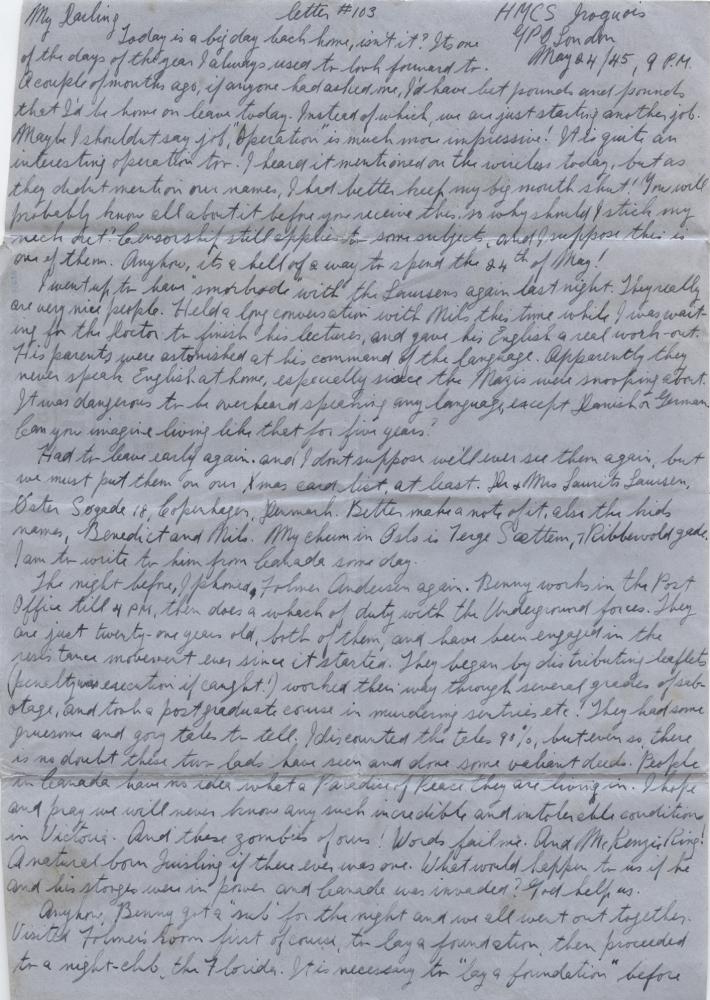 My Darling letter #103 HMCS Iroquois
Today is a big day back home, isn't it? Its one GPO London
of the days of the year I always used to look forward to. May 24/45, 9 P.M.
A couple of months ago, if anyone had asked me, I'd have bet pounds and pounds
that I'd be home on leave today. Instead of which, we are just starting another job.
Maybe I shouldnt say job, "Operation" is much more impressive! It is quite an
interesting operation too. I heard it mentioned on the wireless today, but as
they didnt mention our names, I had better keep my big mouth shut! You will
probably know all about it before you receive this, so why should I stick my
neck out! Censorship still applies to some subjects, and I suppose this is
one of them. Anyhow, its a hell of a way to spend the 24th of May!
I went up to have "smorbrode" with the Laursens again last night. They really
are very nice people. Held a long conversation with Nils this time while I was wait-
ing for the Doctor to finish his lectures, and gave his English a real work-out.
His parents were astonished at his command of the language. Apparently they
never speak English at home, especially since the Nazis were snooping about.
It was dangerous to be overheard speaking any language, except Danish or German
Can you imagine living like that for five years?
Had to leave early again. and I dont suppose we'll ever see them again, but
we must put them on our Xmas card list, at least. Dr & Mrs Laurits Laursen,
Oster Sogade 18, Copenhagen, Denmark. Better make a note of it, also the kids
names, Benedict and Nils. My chum in Oslo is Terge Scattem, 7 Ribbervold gade.
I am to write to him from Canada some day.
The night before, I phoned Folmer Andersen again. Benny works in the Post
Office till 4 P.M., then does a whack of duty with the Underground forces. They
are just twenty-one years old, both of them, and have been engaged in the
resistance movement ever since it started. They began by distributing leaflets
(penalty was execution if caught!) worked their way through several grades of sab-
otage, and took a postgraduate course in murdering sentries etc! They had some
gruesome and gory tales to tell. I discounted the tales 90%, but even so, there
is no doubt these two lads have seen and done some valient deeds. People
in Canada have no idea what a Paradise of Peace they are living in. I hope
and pray we will never know any such incredible and intolerable condition
in Victoria. And these zombies of ours! Words fail me. And McKenzie King!
A natural born Quisling if there ever was one. What would happen to us if he
and his stooges were in power and Canada was invaded? God help us.
Anyhow, Benny got a "sub" for the night and we all went out together.
Visited Folmer's Room first of course, to lay a foundation, then proceeded
to a night-club, the Florida. It is necessary to "lay a foundation" before